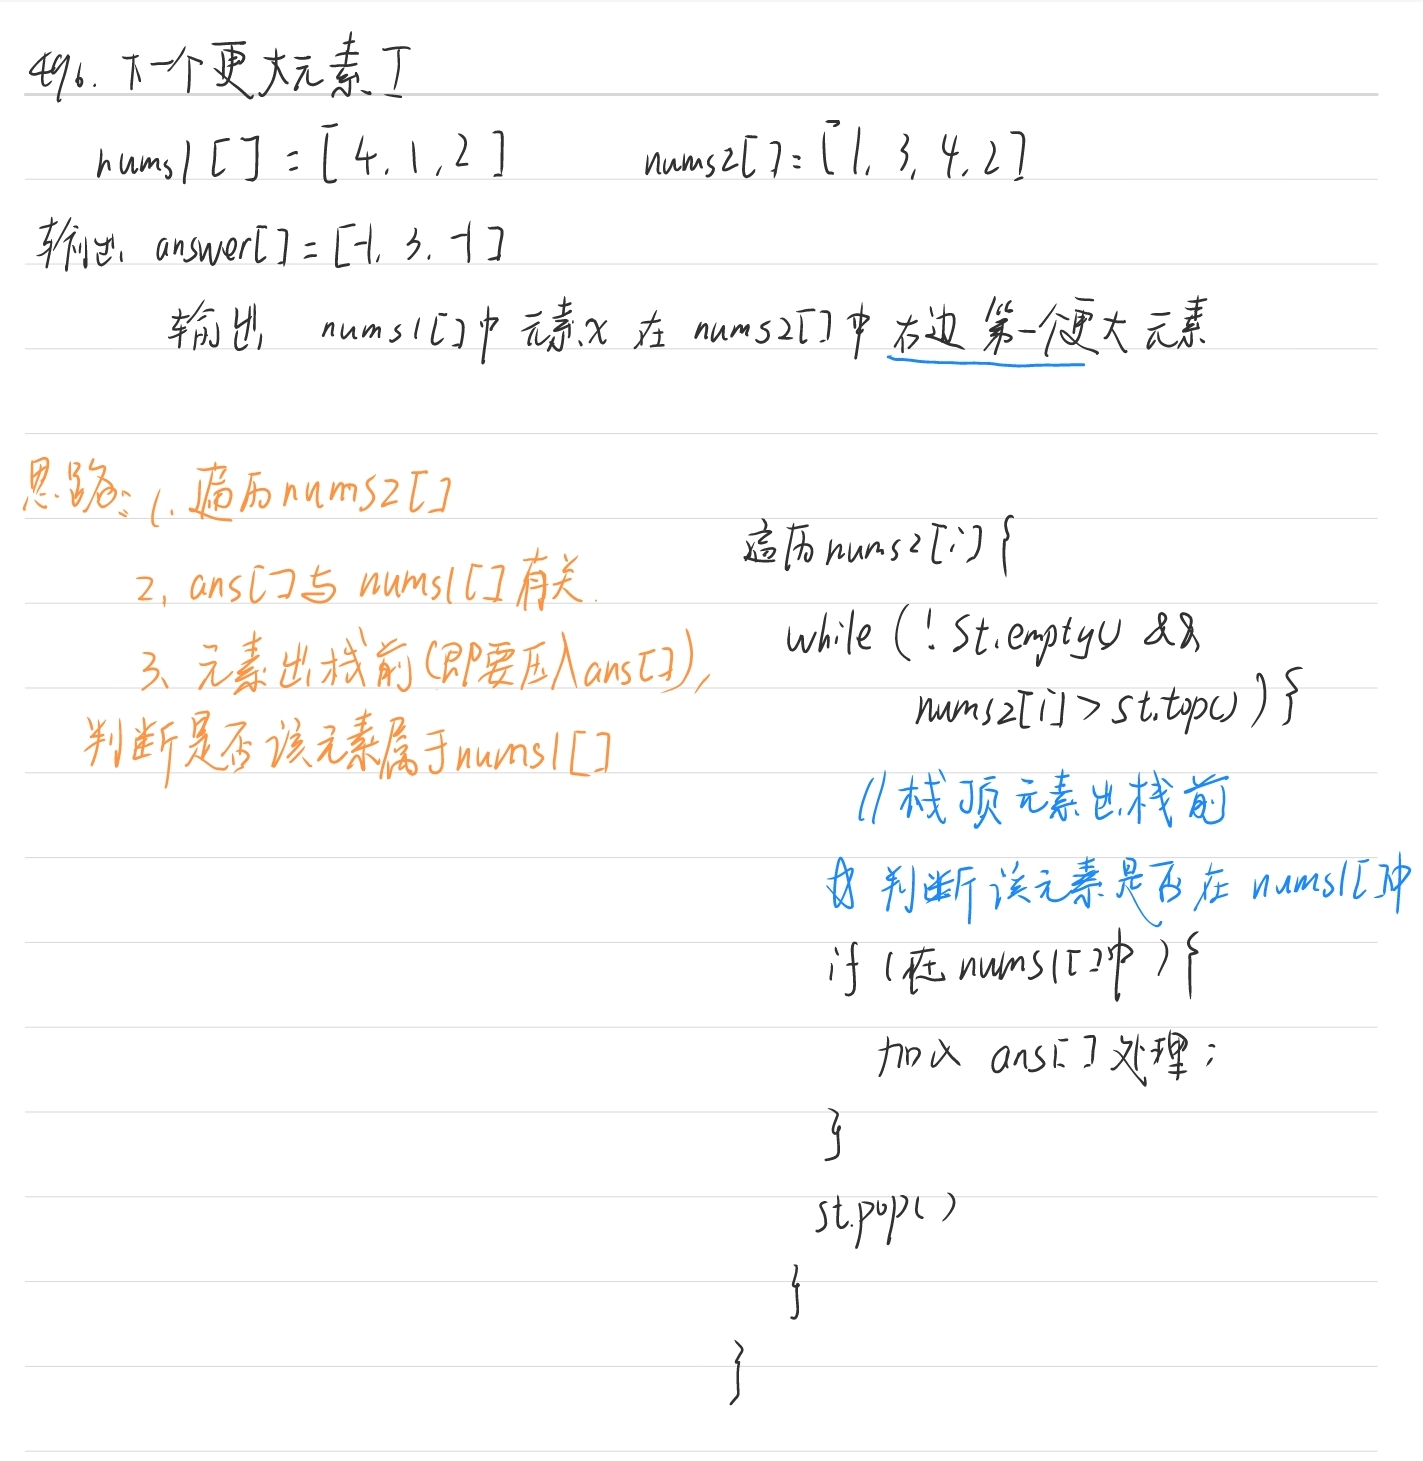 496. 下一个更大元素 I
nums1[] = [4, 1, 2] nums2[] = [1, 3, 4, 2]
输出 answer[] = [-1, 3, -1]
输出 nums1[]中 元素x 在 nums2[]中 右边 第一个更大元素
思路: 1. 遍历nums2[]
2. ans[]与 nums1[]有关.
3、元素出栈前(即要压入ans[]),
判断是否该元素属于nums1[]
遍历nums2[i]{
while (!St.empty() &&
nums2[i] > st.top()){
//栈顶元素出栈前
判断该元素是否在 nums1[]中
if (在nums1[]中){
加入 ans[]处理;
}
st.pop()
}
}